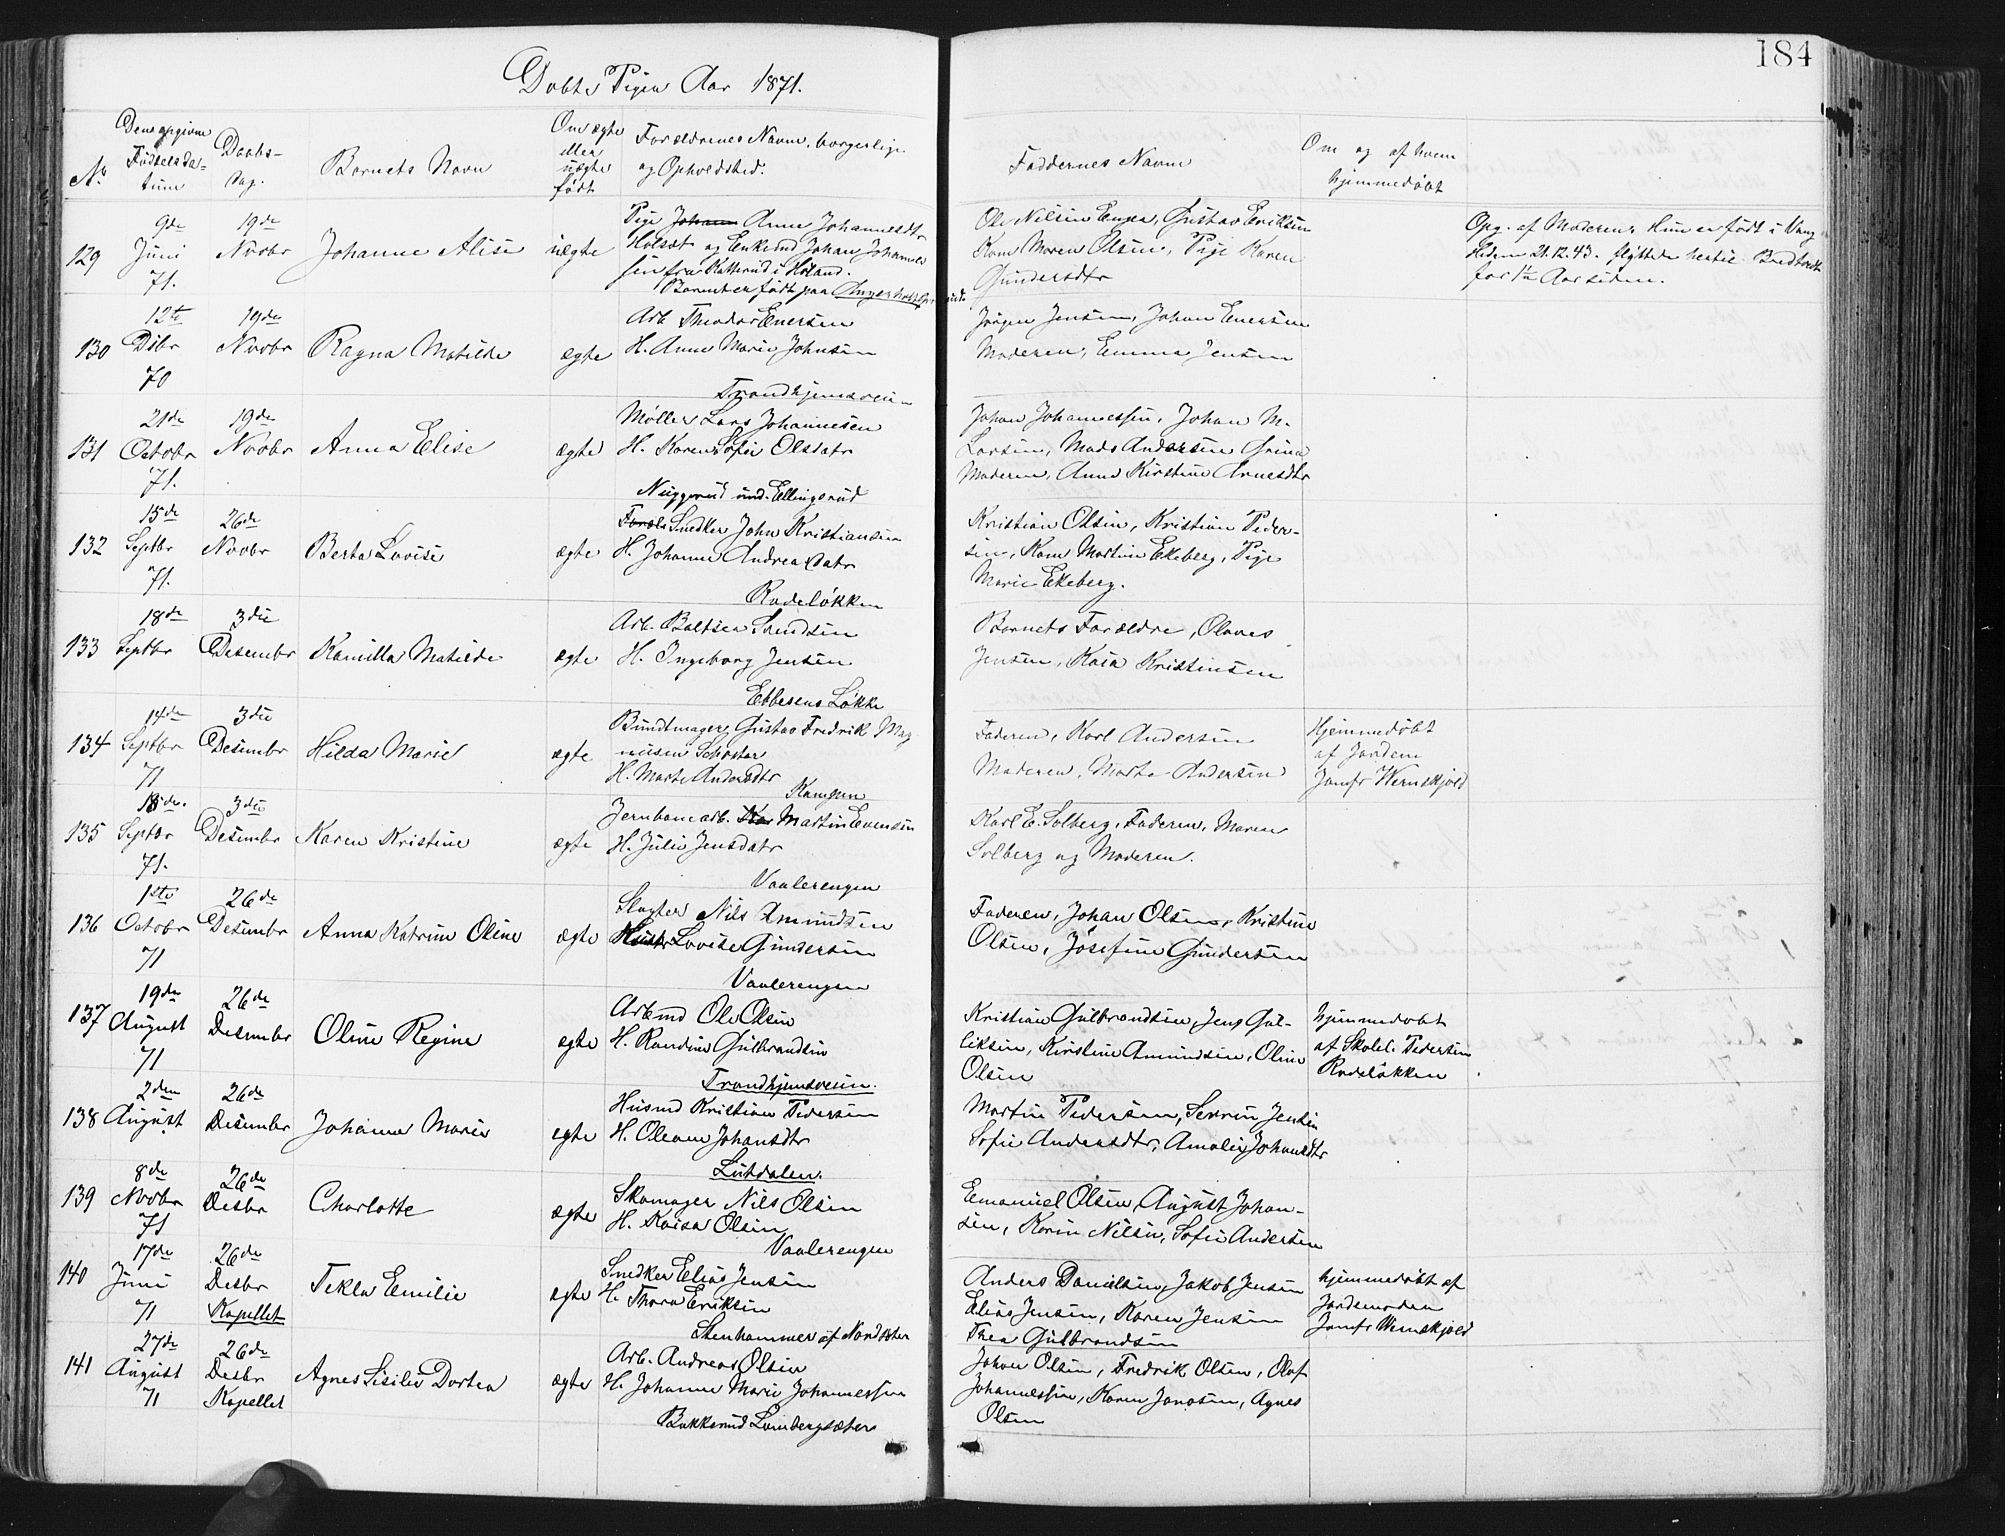 184
Døbte Piger Aar 1871.
No
Den opgivne Fødselsdatum
Daabs-
dag.
Barnets Navn
Om ægte
eller
uægte
født
Forældrenes Navn, borgerlige
og Opholdsted.
Faddernes Navne
Om og af hvem
hjemmedøbt
129
9de
Juni
71.
19de
Novbr
Johanne Alise
uægte
Pige Johann Anne Johannesdtr
og Enkemd Johan Johannes
sen fra Katterud i Høland.
Barnet er født paa
Ole Nilsen Engen, Gustav Eriksen
Kone Maren Olsen, Pige Karen
Gundersdtr
Opg. af Moderen. Hun er født i Vang
Hedem 21.12.43. flyttede hertil
for 1½ Aar siden.
130
12te
Dsbr
70
19de
Novbr
Ragna Matilde
ægte
Arb Theodor Evensen
H. Anne Marie Johnsen
Trondhjemsveien
Jørgen Jensen, Johan Evensen
Moderen, Emma Jensen
131
21de
Octobr
71.
19de
Novbr
Anna Elise
ægte
Møller Lars Johannesen
H. Karen Sofie Olsdatr
und. Ellingsrud
Johan Johannessen, Johan M.
Larsen, Mads Andersen Grina
Moderen, Anne Kirstine Arnesdtr
132
15de
Septbr
71.
26de
Novbr
Berta Lovise
ægte
Snedker John Kristiansen
H. Johanne Andreadatr
Rodeløkken
Kristian Olsen, Kristian Peder-
sen, Kone Martine Ekeberg, Pige
Marie Ekeberg.
133
18de
Septbr
3die
Desembr
Kamilla Matilde
ægte
Arb. Baltser Svendsen
H. Ingeborg Jensen
Ebbesens Løkke
Barnets Forældre, Olaves
Jensen, Kaia Kristinsen
134
14de
Septbr
71
3die
Desembr
Hilda Marie
ægte
Bundtmager Gustav Fredrik Mag
nusen Schøster
H. Marte Andersdtr
Kampen
Faderen, Karl Andersen
Moderen, Marte Andersen
Hjemmedøbt
af Jordem
Jomfr Wernskjold
135
18de
Septbr
71.
3die
Desembr
Karen Kristine
ægte
Jernbanearb. Kar Martin Evensen
H. Julie Jensdatr
Vaalerengen
Karl E. Solberg, Faderen, Maren
Solberg og Moderen.
136
1ste
Octobr
71
26de
Desembr
Anna Katrine Oline
ægte
Slagter Nils Amundsen
Hustr Lovise Gundersen
Vaalerengen
Faderen, Johan Olsen, Kristine
Olsen, Josefine Gundersen
137
19de
August
71
26de
Desembr
Oline Regine
ægte
Arbmd Ole Olsen
H. Randine Gulbrandsen
Trondhjemsveien.
Kristian Gulbrandsen, Jens Gul-
liksen, Kirstine Amundsen, Oline
Olsen
hjemmedøbt
af Skolel. Pedersen
Rodeløkken
138
2den
August
26de
Desembr
Johanne Marie
egte
Husmd Kristian Pedersen
H. Oleane Johansdtr
Lutdalen.
Martin Pedersen, Severin Jensen
Sofie Andersdtr, Amalie Johansdtr
139
8de
Novbr
71
26de
Desbr
Charlotte
ægte
Skomager Nils Olsen
H. Kaisa Olsen
Vaalerengen
Emanuel Olsen, August Johan-
sen, Karin Nilsen, Sofie Andersen
140
17de
Juni
71
26de
Desbr
Kapellet
Tekla Emilie
ægte
Snedker Elias Jensen
H. Thora Eriksen
Stenhammer af Nordster
Anders Danielsen, Jakob Jensen
Elias Jensen, Karen Jensen
Thea Gulbrandsen
hjemmedøbt af
Jordemoden
Jomfr Wernskjold
141
27de
August
71
26de
Desbr
Kapellet
Agnes Sesilie Dortea
ægte
Arb. Andreas Olsen
H. Johanne Marie Johannessen
Bakkerud Lambergsæter
Johan Olsen, Fredrik Olsen, Olaf
Johannessen, Karen Jonasen, Agnes
Olsen